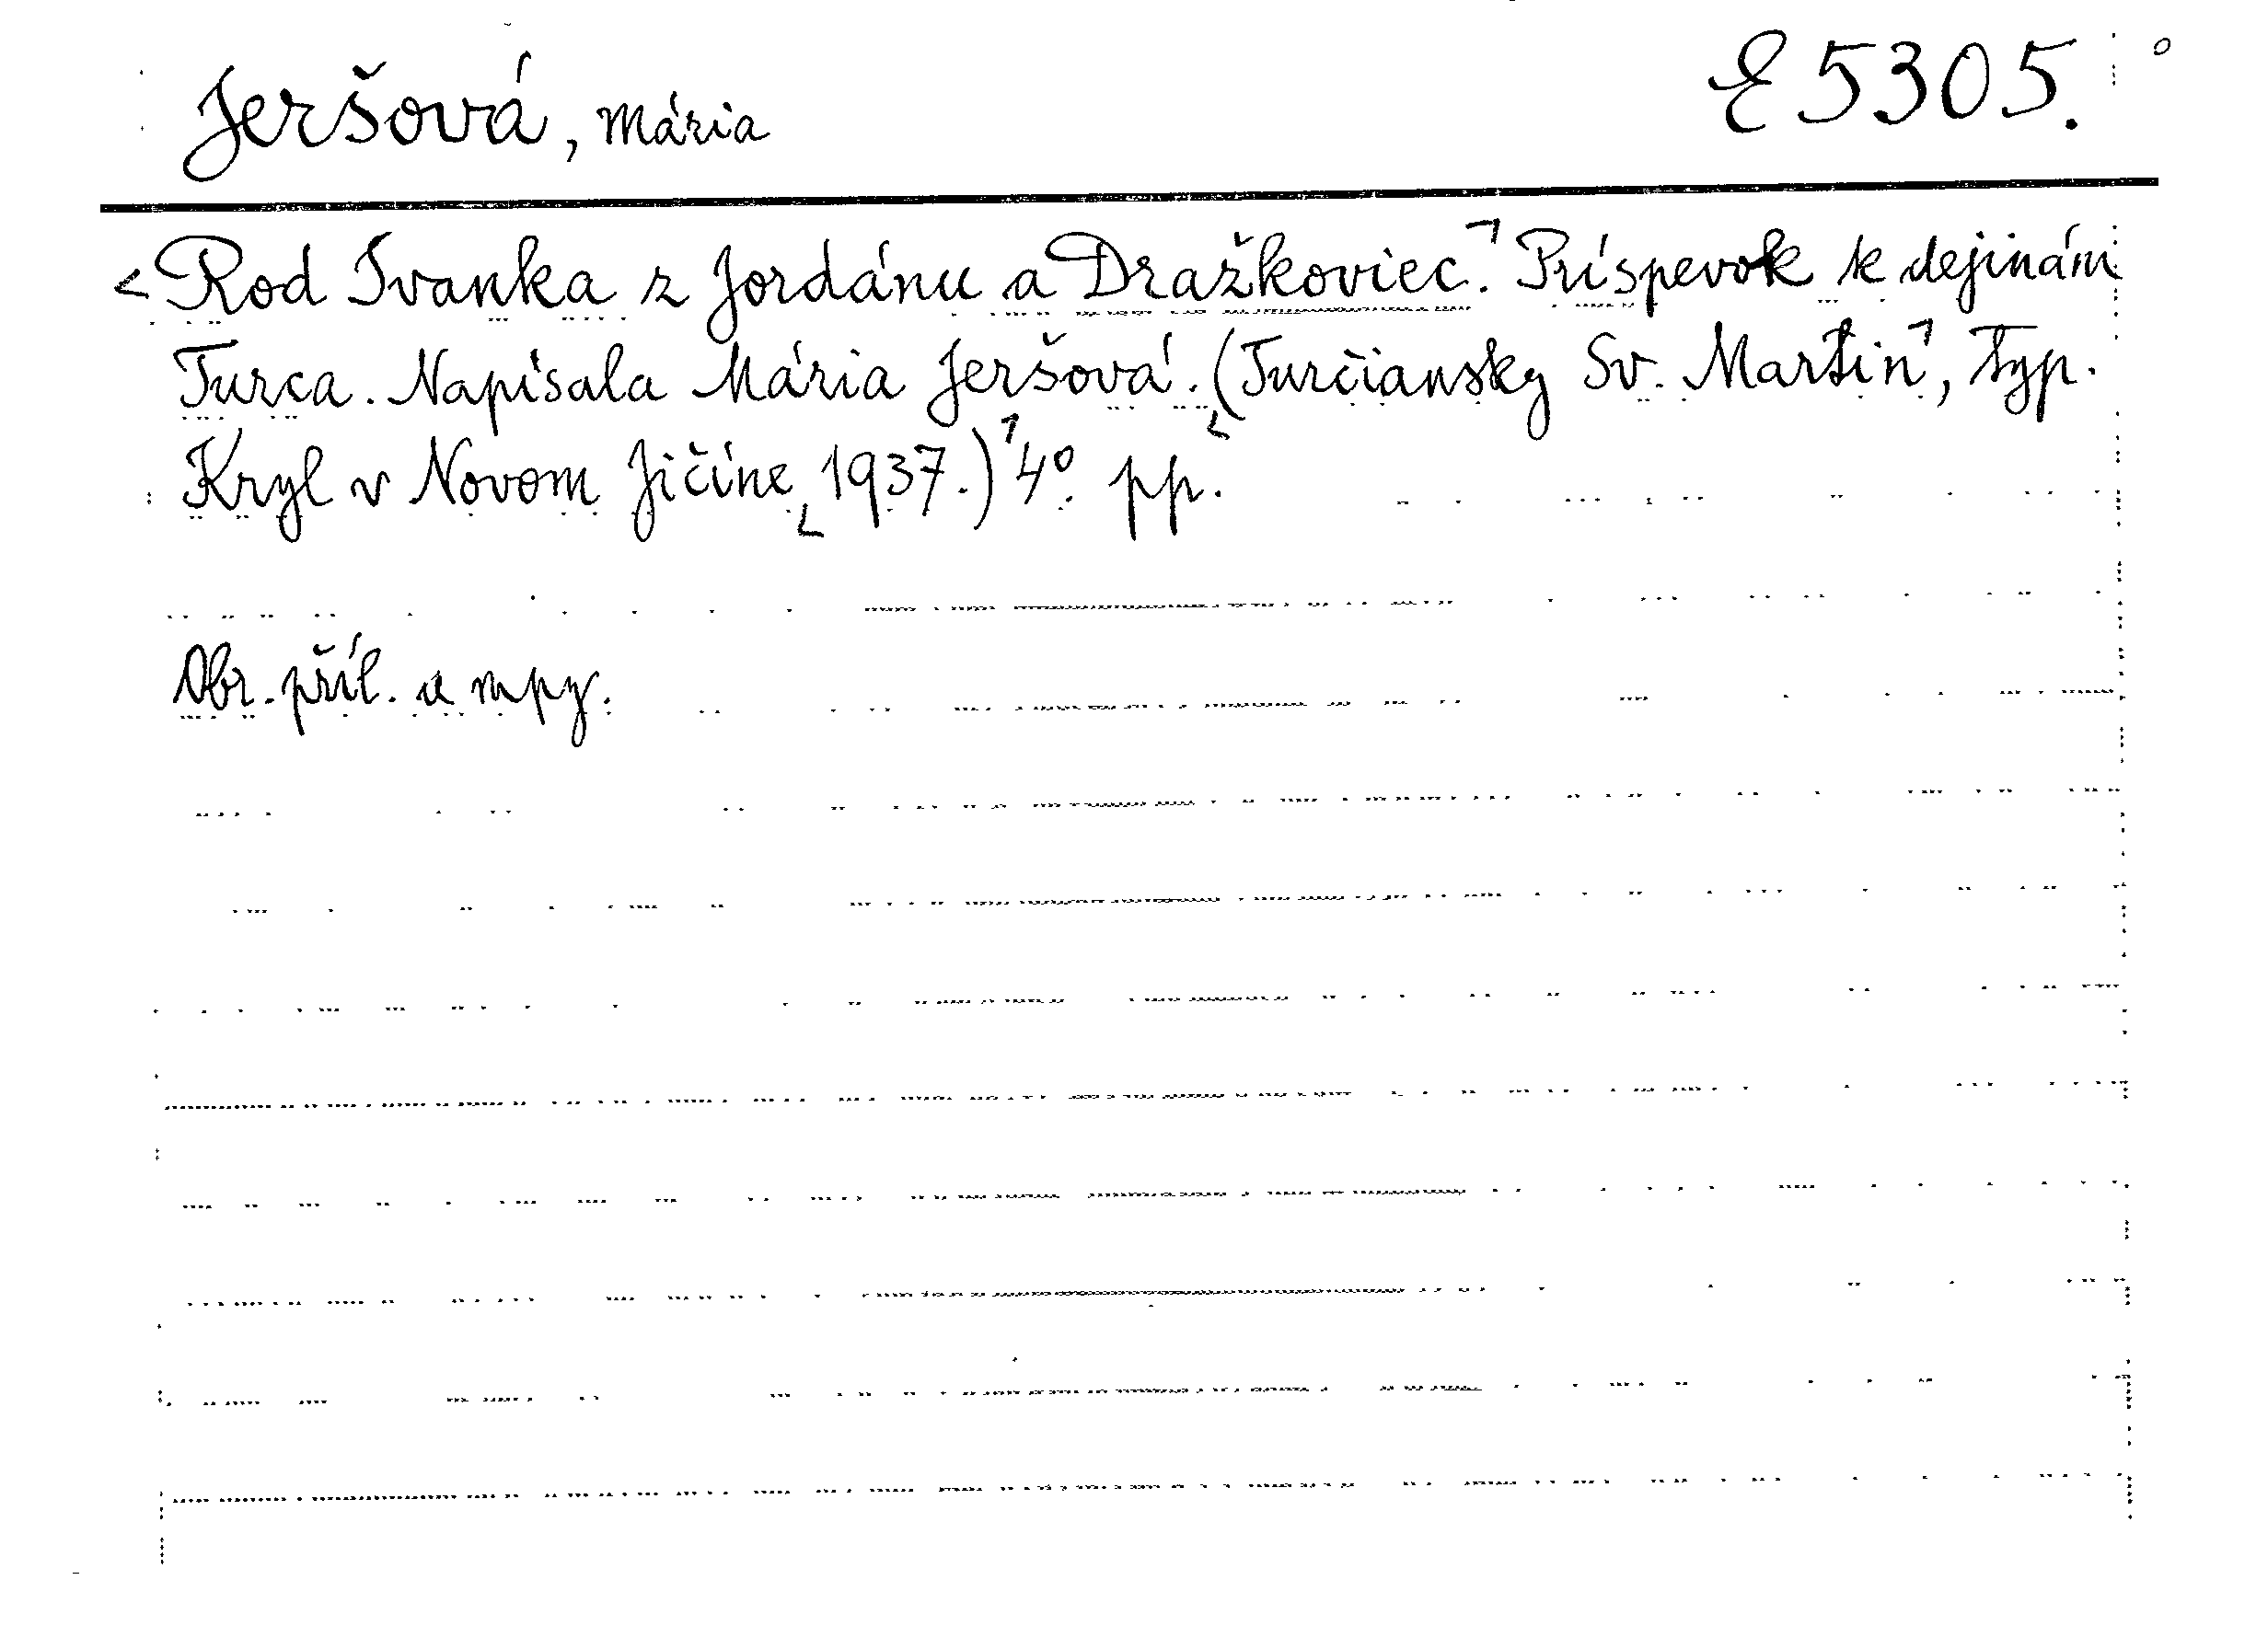 Jeršová, Mária E 5305.
<Rod Ivanka z Jordánu a Dražkoviec.⌝ Príspevok k dejinám
Turca. Napísala Mária Jeršová. ⌞(Turčiansky Sv. Martin⌝, Typ.
Kryl v Novom Jičíne ⌞1937.)⌝ 4° pp.
Obr. příl. a mpy.